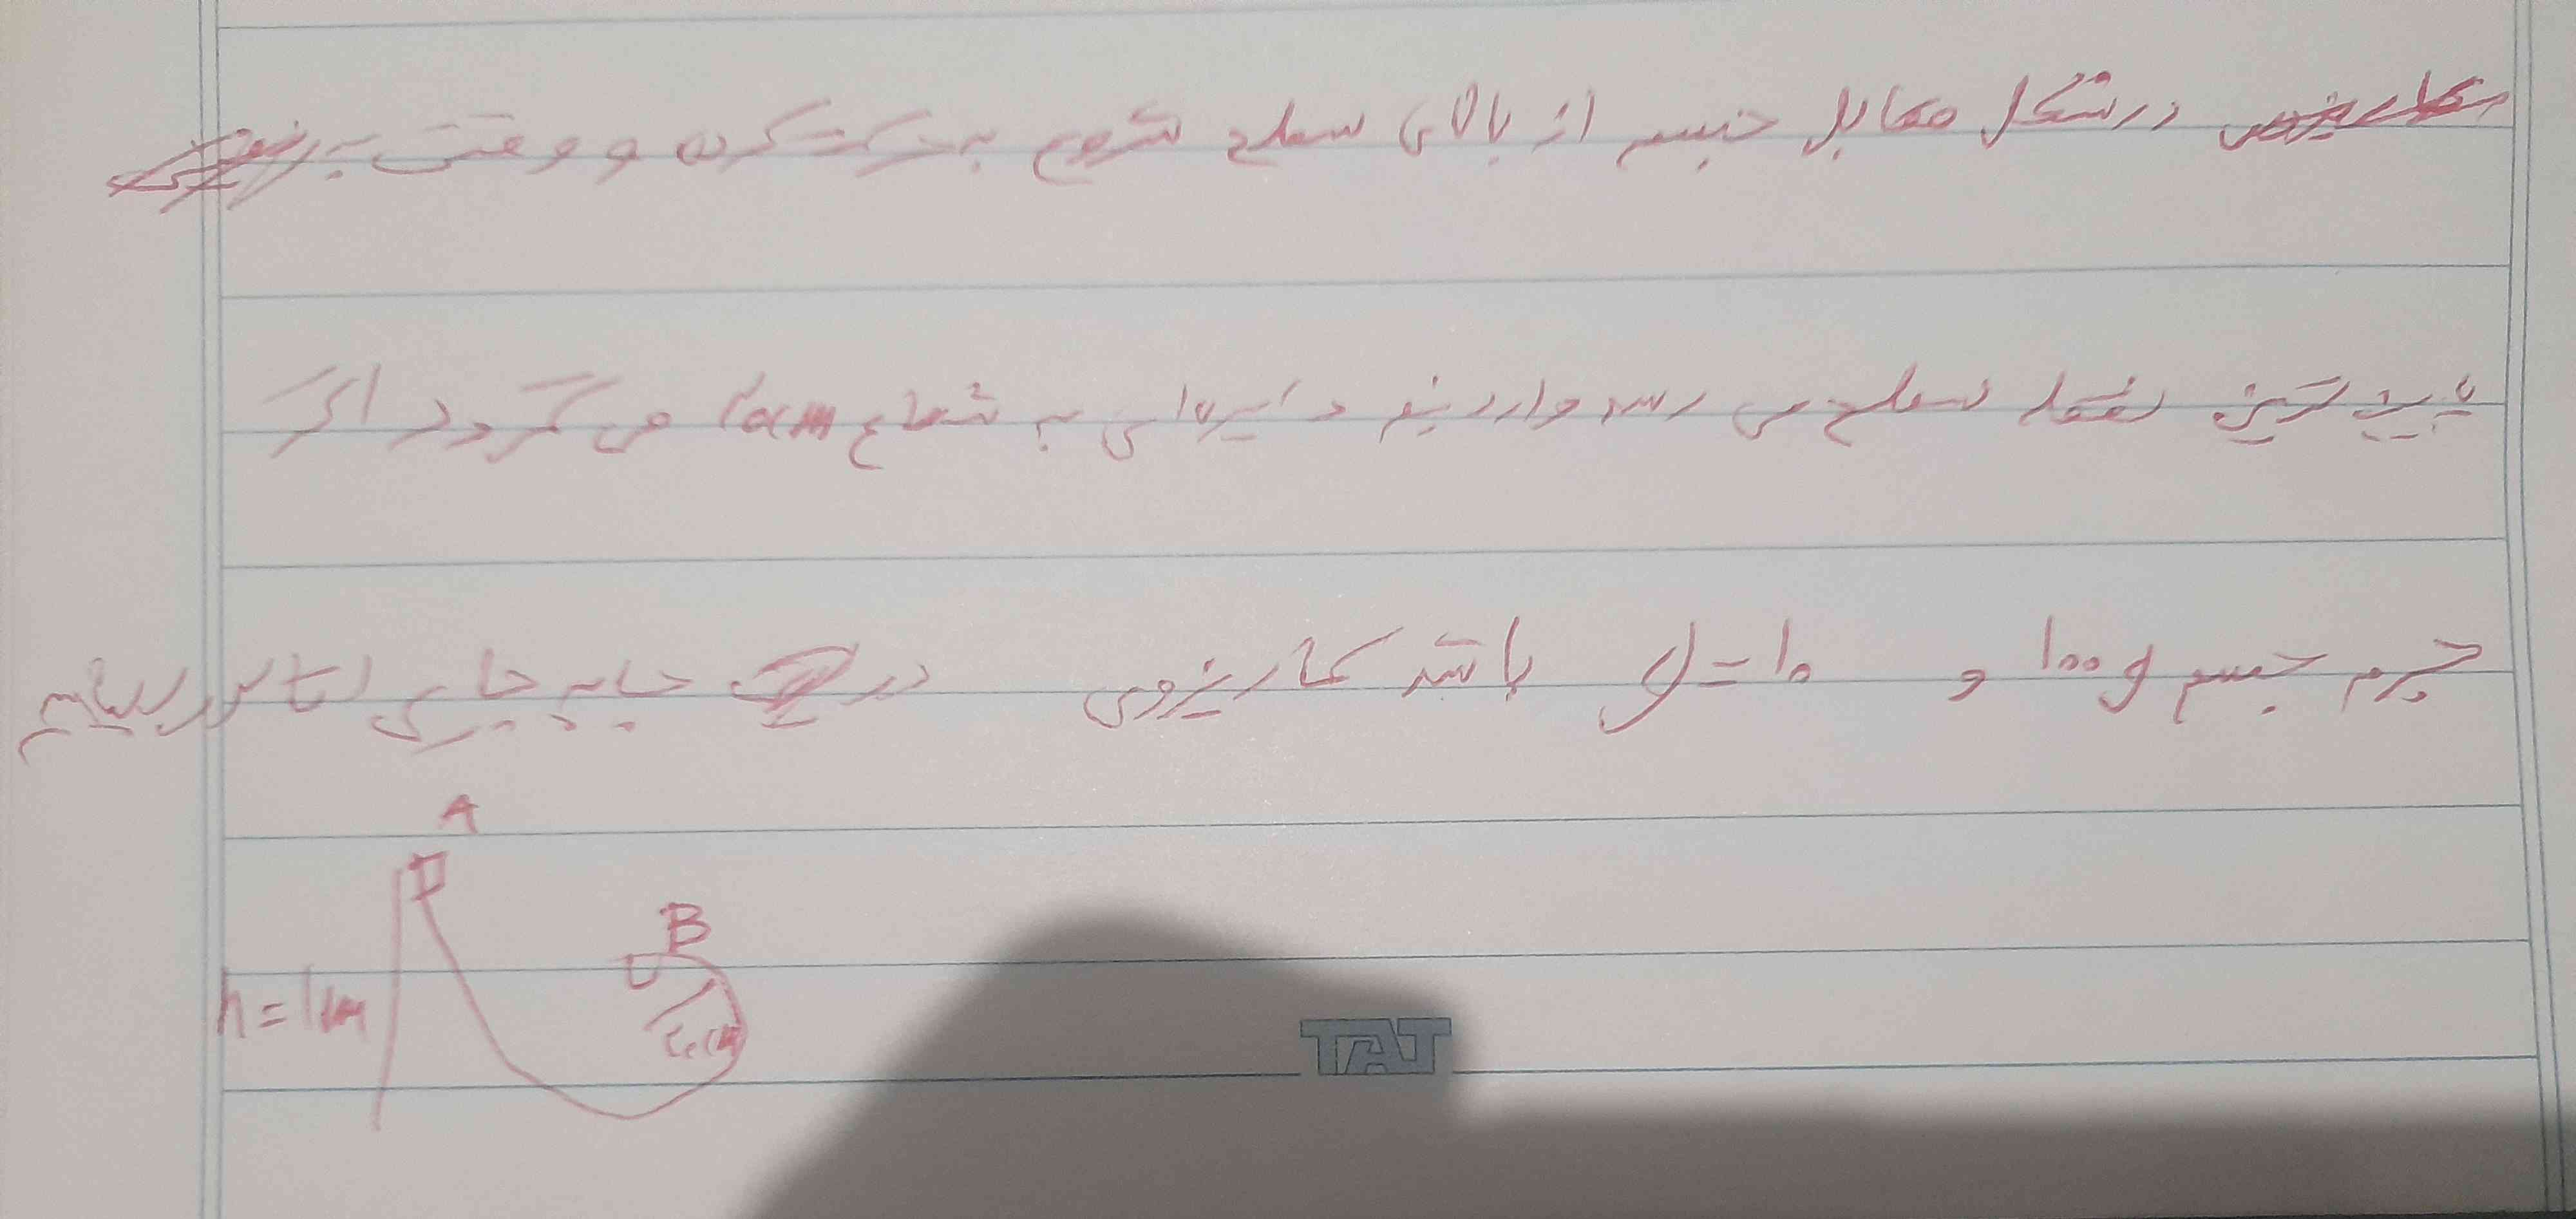 در شکل مقابل جسم از بالای سطح شروع به حرکت کرده و وقتی به
پایین ترین نقطه سطح می رسد وارد نیم دایره ای به شعاع 20cm می گردد اگر
جرم جسم 100g و g=10 باشد کار نیروی در جا به جایی A تا B
A
B
h=1m
20cm
TAT